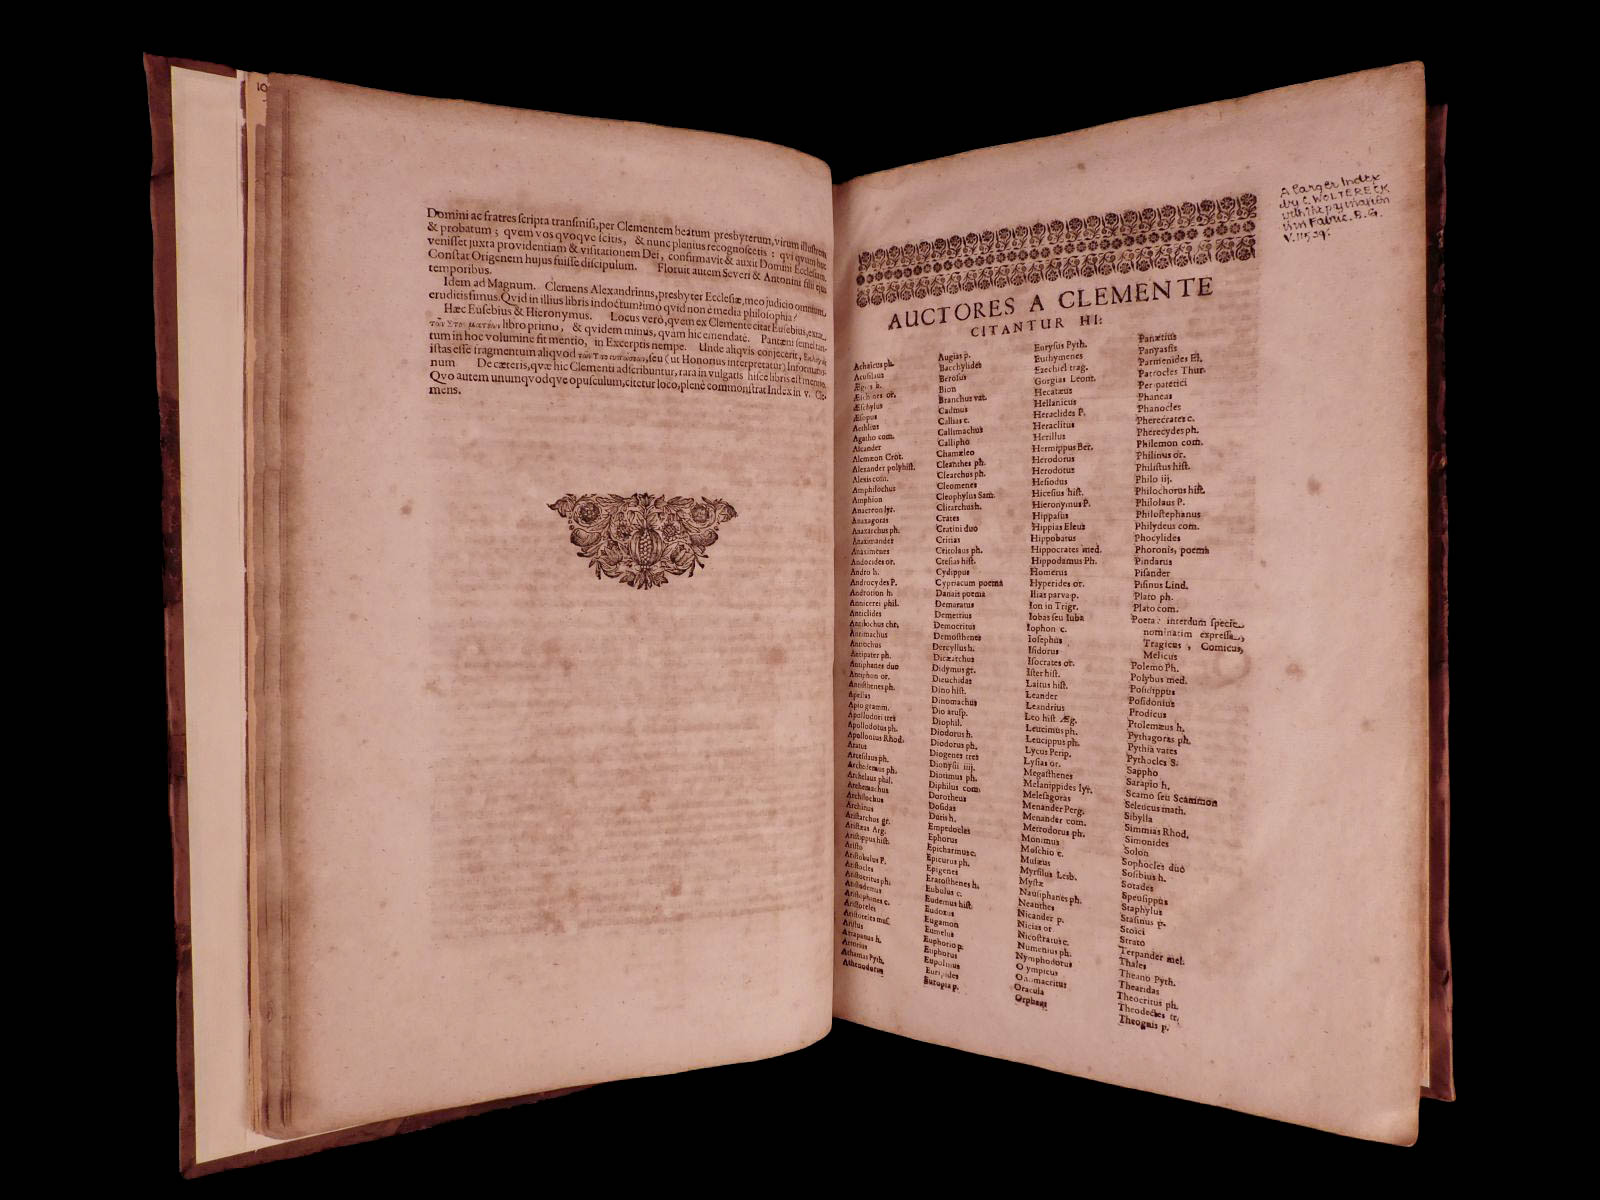 10
Domini ac fratres ſcripta tranſmiſi, per Clementem beatum presbyterum, virum illuſtrem
& probatum ; qvem vos qvoqve ſcitis, & nunc plenius recognoſcetis : qvi qvum huc
veniſſet juxta providentiam & viſitationem Dei, confirmavit & auxit Domini Eccleſiam.
Conſtat Origenem hujus fuiſſe diſcipulum. Floruit autem Severi & Antonini filii ejus
temporibus.
Idem ad Magnum. Clemens Alexandrinus, presbyter Eccleſiæ, meo judicio omnium
eruditiſſimus. Qvid in illius libris indoctum? imò qvid non è media philoſophia?
Hæc Euſebius & Hieronymus. Locus verò, qvem ex Clemente citat Euſebius, extat
libro primo, & qvidem minus, qvam hic emendatè. Pantæni ſemel tan-
tum in hoc volumine fit mentio, in Excerptis nempe. Unde aliqvis conjecerit,
iſtas eſſe fragmentum aliqvod ſeu (ut Honorius interpretatur) Informatio-
num De cæteris, qvæ hic Clementi adſcribuntur, rara in vulgatis hiſce libris eſt mentio.
Qvo autem unumqvodqve opuſculum, citetur loco, plenè commonſtrat Index in v. Cle-
mens.
A larger Index
by C. WOLTERECK
in Fabric. B. G.
AUCTORES A CLEMENTE
CITANTUR HI:
Achaicus ph.
Acuſilaus
Æſchines or.
Æſchylus
Æſopus
Aethlius
Agatho com.
Alcander
Alcmæon Crot.
Alexander polyhiſt.
Alexis com.
Amphilochus
Amphion
Anacreon lyr.
Anaxagoras
Anaxarchus ph.
Anaximander
Anaximenes
Andocides or.
Andro h.
Androcydes P.
Androtion h.
Annicerei phil.
Anticlides
Antilochus chr.
Antimachus
Antiochus
Antipater ph.
Antiphanes duo
Antiphon or.
Antiſthenes ph.
Apellas
Apio gramm.
Apollodori tres
Apollodotus ph.
Apollonius Rhod.
Aratus
Arceſilaus ph.
Archedemus ph.
Archelaus phil.
Archemachus
Archilochus
Archinus
Ariſtarchus gr.
Ariſtæas Arg.
Ariſtippus hiſt.
Ariſto
Ariſtobulus P.
Ariſtocles
Ariſtocritus ph.
Ariſtodemus
Ariſtophanes c.
Ariſtoteles
Ariſtoteles muſ.
Ariſtus
Artapanus h.
Artorius
Athamas Pyth.
Athenodorus
Augias p.
Bacchylides
Beroſus
Bion
Branchus vat.
Cadmus
Callias c.
Callimachus
Callipho
Chamæleo
Cleanthes ph.
Clearchus ph.
Cleomenes
Cleophylus Sam.
Clitarchus h.
Crates
Cratini duo
Critias
Critolaus ph.
Cteſias hiſt.
Cydippus
Cypriacum poema
Danais poema
Demaratus
Demetrius
Democritus
Demoſthenes
Dercyllus h.
Dicæarchus
Didymus gr.
Dieuchidas
Dino hiſt.
Dinomachus
Dio aruſp.
Diophil.
Diodorus h.
Diodorus ph.
Diogenes tres
Dionyſii iiij.
Diotimus ph.
Diphilus com.
Dorotheus
Doſidas
Duris h.
Empedocles
Ephorus
Epicharmus c.
Epicurus ph.
Epigenes
Eratoſthenes h.
Eubulus c.
Eudemus hiſt.
Eudoxus
Eugamon
Eumelus
Euphorio p.
Euphorus
Eupolinus
Euripides
Europia p.
Euryſus Pyth.
Euthymenes
Ezechiel trag.
Gorgias Leont.
Hecatæus
Hellanicus
Heraclides P.
Heraclitus
Herillus
Hermippus Ber.
Herodorus
Herodotus
Heſiodus
Hiceſius hiſt.
Hieronymus P.
Hippaſus
Hippias Eleus
Hippobatus
Hippocrates med.
Hippodamus Ph.
Homerus
Hyperides or.
Ilias parva p.
Ion in Trigr.
Iobas ſeu Iuba
Iophon c.
Ioſephus
Iſidorus
Iſocrates or.
Iſter hiſt.
Laitus hiſt.
Leander
Leandrius
Leo hiſt. Æg.
Leucimus ph.
Leucippus ph.
Lycus Perip.
Lyſias or.
Megaſthenes
Melanippides lyr.
Meleſagoras
Menander Perg.
Menander com.
Metrodorus ph.
Monimus
Moſchio c.
Muſæus
Myrſilus Lesb.
Myſtæ
Nauſiphanes ph.
Neanthes
Nicander p.
Nicias or
Nicoſtratus c.
Numenius ph.
Nymphodorus
Olympicus
Onomacritus
Oracula
Orpheus
Panætius
Panyaſſis
Parmenides El.
Patrocles Thur.
Peripatetici
Phaneas
Phanocles
Pherecrates c.
Pherecydes ph.
Philemon com.
Philinus or.
Philiſtus hiſt.
Philo iij.
Philochorus hiſt.
Philolaus P.
Philoſtephanus
Philydeus com.
Phocylides
Phoronis, poema
Pindarus
Piſander
Piſinus Lind.
Plato ph.
Plato com.
Poeta: interdum ſpecie
nominatim expreſſa,
Tragicus, Comicus,
Melicus
Polemo Ph.
Polybus med.
Poſidippus
Poſidonius
Prodicus
Ptolemæus h.
Pythagoras ph.
Pythia vates
Pythocles S.
Sappho
Sarapio h.
Scamo ſeu Scammon
Seleucus math.
Sibylla
Simmias Rhod.
Simonides
Solon
Sophocles duo
Soſibius h.
Sotades
Speuſippus
Staphylus
Staſinus p.
Stoici
Strato
Terpander mel.
Thales
Theano Pyth.
Thearidas
Theocritus ph.
Theodectes tr.
Theognis p.